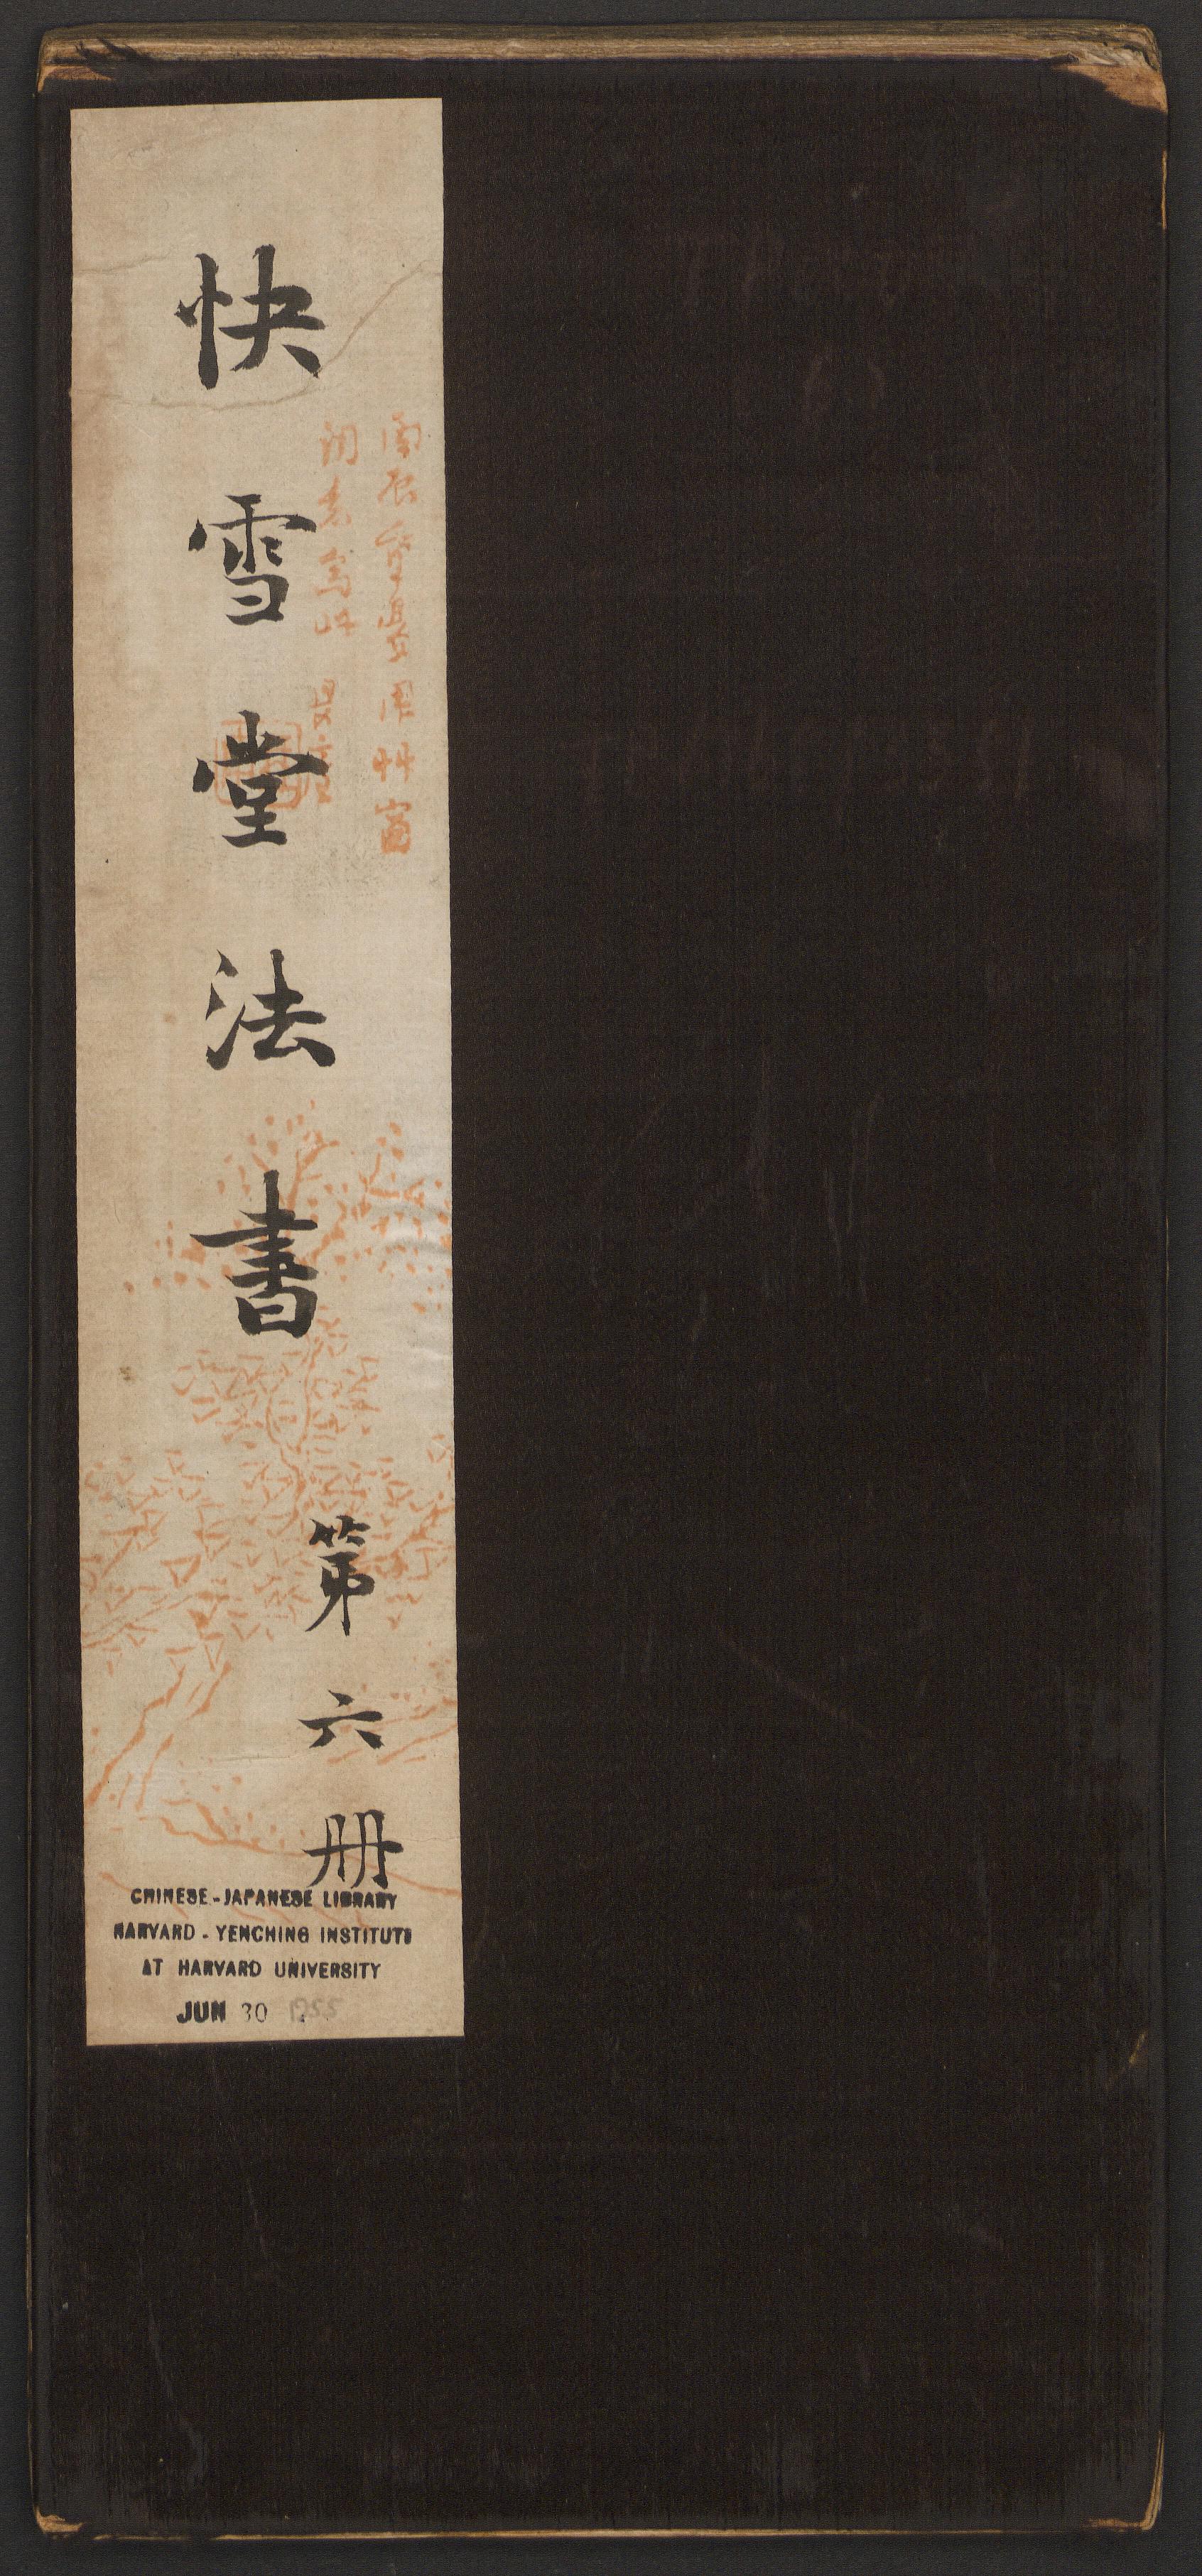 快雪堂法書
第六册
CHINESE-JAPANESE LIBRARY
HARVARD-YENCHING INSTITUTE
AT HARVARD UNIVERSITY
JUN 30 1955